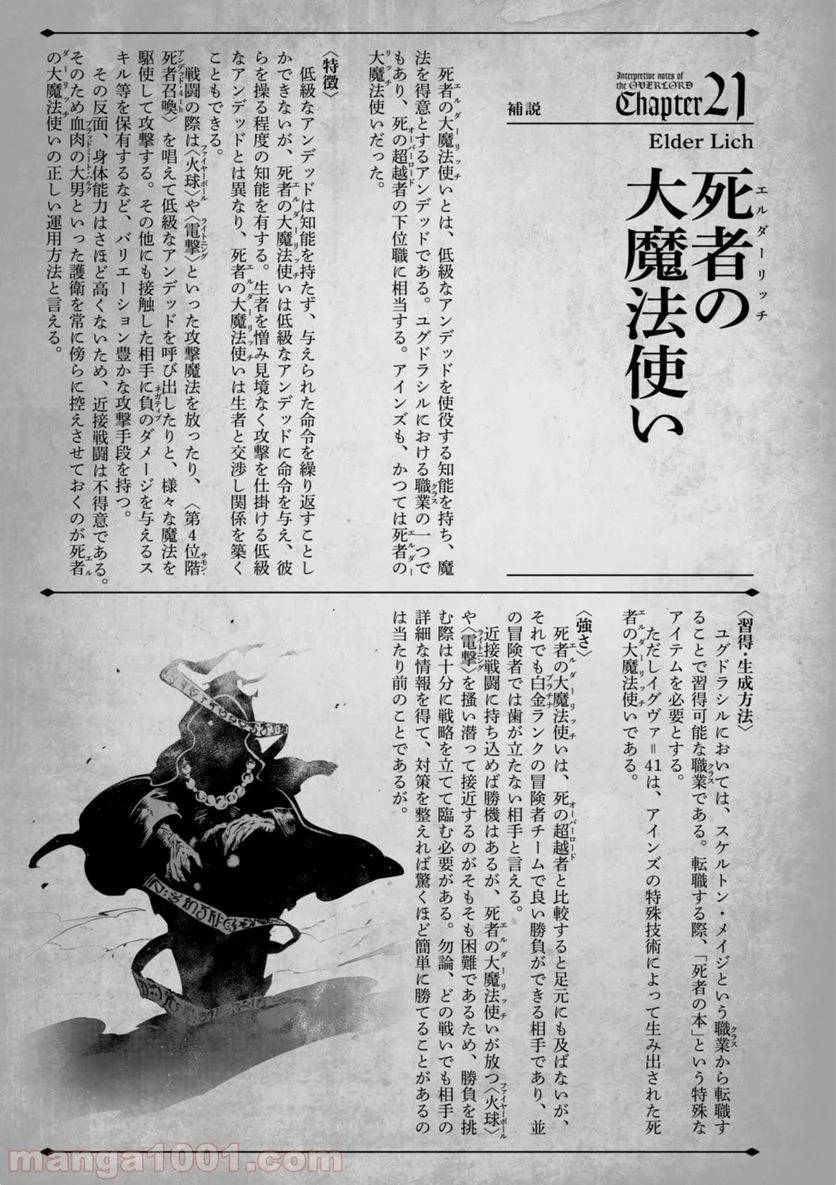 Interpretive notes of
the OVERLORD
Chapter 21
補説
Elder Lich
エルダーリッチ
死者の
大魔法使い
死者の大魔法使いとは、低級なアンデッドを使役する知能を持ち、魔
法を得意とするアンデッドである。ユグドラシルにおける職業の一つで
もあり、死の超越者の下位職に相当する。アインズも、かつては死者の
大魔法使いだった。
〈特徴〉
低級なアンデッドは知能を持たず、与えられた命令を繰り返すことし
かできないが、死者の大魔法使いは低級なアンデッドに命令を与え、彼
らを操る程度の知能を有する。生者を憎み見境なく攻撃を仕掛ける低級
なアンデッドとは異なり、死者の大魔法使いは生者と交渉し関係を築く
こともできる。
戦闘の際は〈火球〉や〈電撃〉といった攻撃魔法を放ったり、〈第4位階
死者召喚〉を唱えて低級なアンデッドを呼び出したりと、様々な魔法を
駆使して攻撃する。その他にも接触した相手に負のダメージを与えるス
キル等を保有するなど、バリエーション豊かな攻撃手段を持つ。
その反面、身体能力はさほど高くないため、近接戦闘は不得意である。
そのため血肉の大男といった護衛を常に傍らに控えさせておくのが死者
の大魔法使いの正しい運用方法と言える。
〈習得・生成方法〉
ユグドラシルにおいては、スケルトン・メイジという職業から転職す
ることで習得可能な職業である。転職する際、「死者の本」という特殊な
アイテムを必要とする。
ただしイグヴァ＝41は、アインズの特殊技術によって生み出された死
者の大魔法使いである。
〈強さ〉
死者の大魔法使いは、死の超越者と比較すると足元にも及ばないが、
それでも白金ランクの冒険者チームで良い勝負ができる相手であり、並
の冒険者では歯が立たない相手と言える。
近接戦闘に持ち込めば勝機はあるが、死者の大魔法使いが放つ〈火球〉
や〈電撃〉を掻い潜って接近するのがそもそも困難であるため、勝負を挑
む際は十分に戦略を立てて臨む必要がある。勿論、どの戦いでも相手の
詳細な情報を得て、対策を整えれば驚くほど簡単に勝てることがあるの
は当たり前のことであるが。
manga1001.com